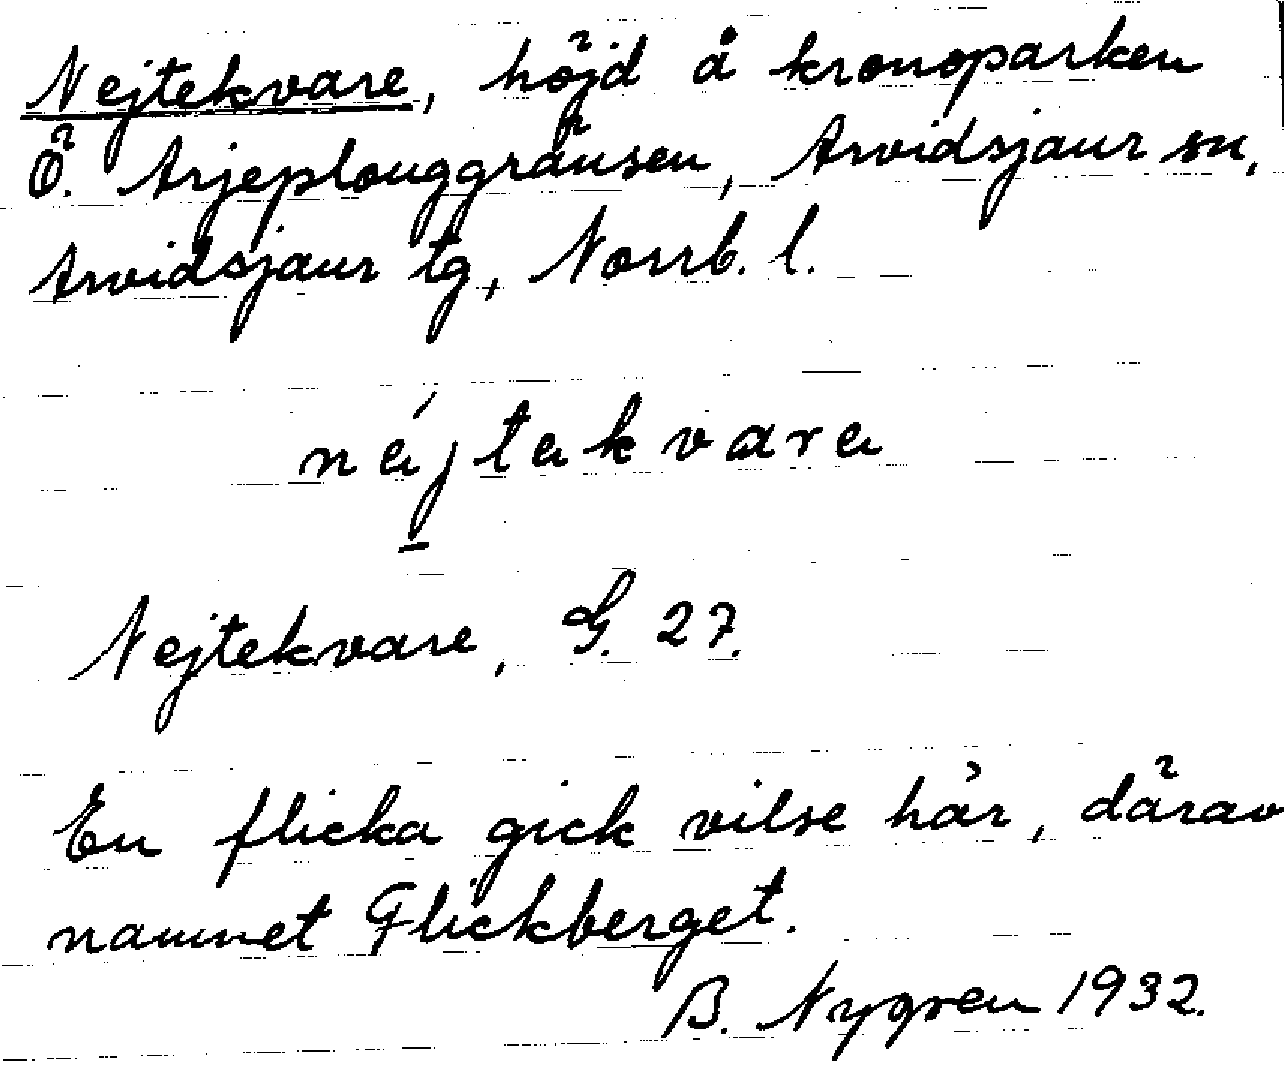 Nejtekvare, höjd å kronoparken
Ö. Arjeplouggränsen, Arvidsjaur sn,
Arvidsjaur tg, Norrb. l.
néjtekvare
Nejtekvare, G. 27.
En flicka gick vilse här, därav
namnet Flickberget.
B. Nygren 1932.